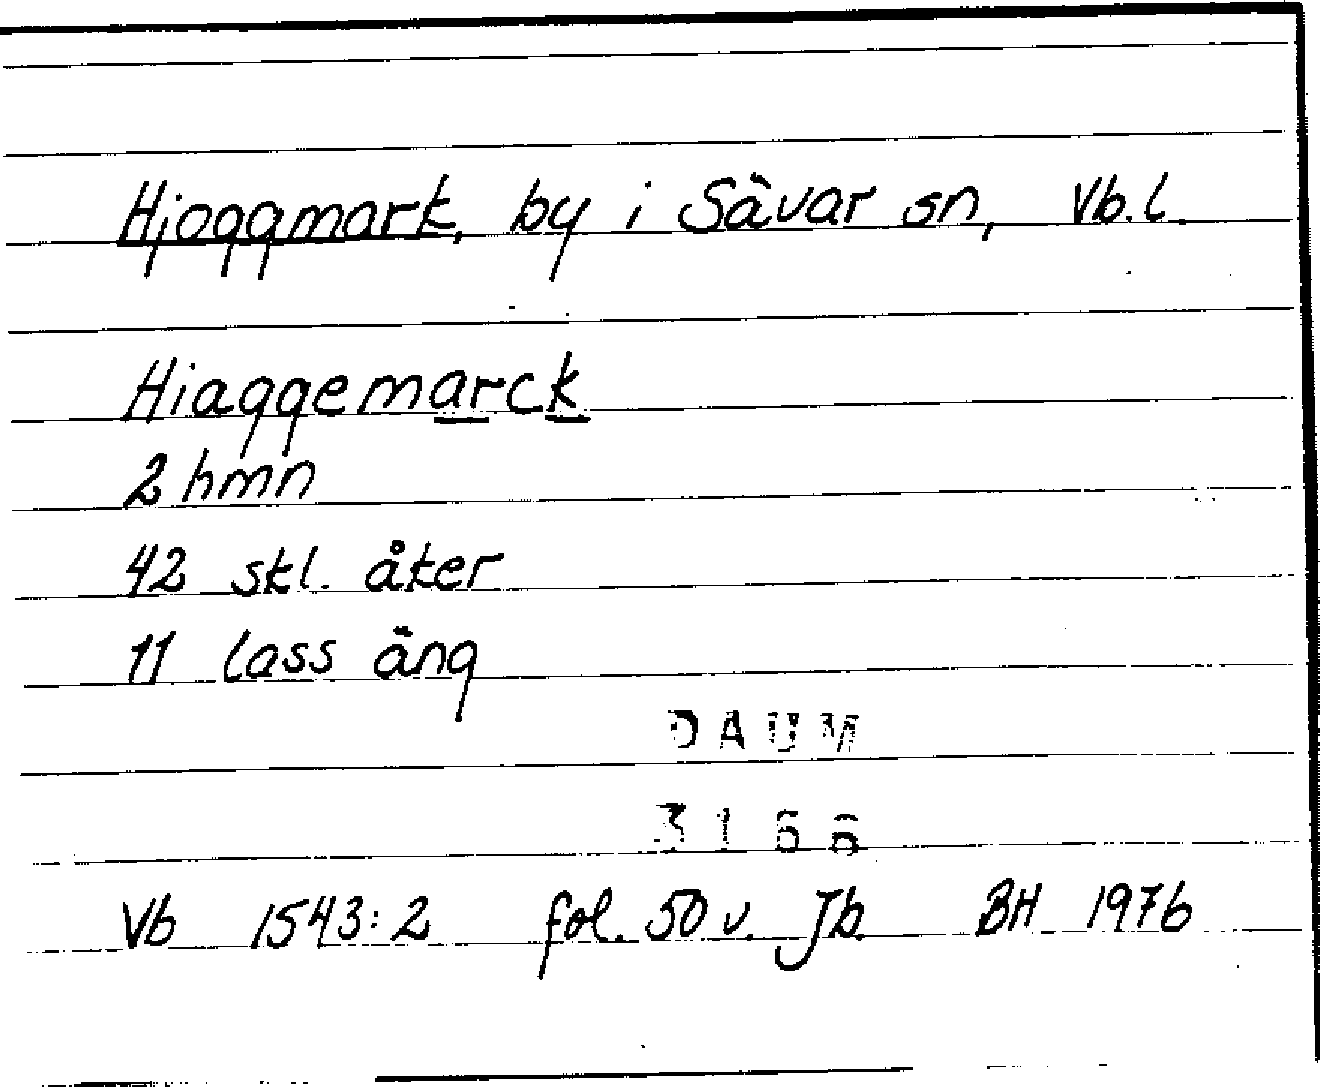 Hjoggmark, by i Sävar sn, Vb.l.
Hiaggemarck
2 hmn
42 skl. åker
11 lass äng
DAUM
3166
Vb 1543:2 fol. 50 v. Jb. BH 1976